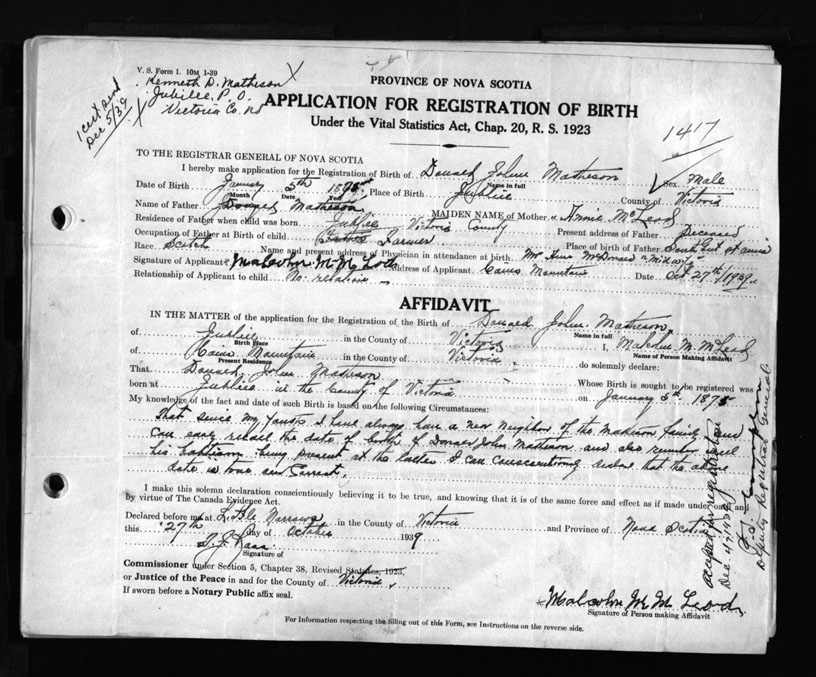 V. S. Form 1. 10M 1-39
Kenneth D. Matheson
Jubilee P. O.
Victoria Co. NS
1 cert send
Dec 5/39
PROVINCE OF NOVA SCOTIA
APPLICATION FOR REGISTRATION OF BIRTH
Under the Vital Statistics Act, Chap. 20, R. S. 1923
1417
TO THE REGISTRAR GENERAL OF NOVA SCOTIA
I hereby make application for Registration of Birth of Donald John Matheson Sex Male
Name in full
Date of Birth January 5th 1875 Place of Birth Jubilee County of Victoria
Month Date Year
Name of Father Donald Matheson MAIDEN NAME of Mother Annie McLeod
Residence of Father when child was born Jubilee Victoria County Present address of Father Deceased
Occupation of Father at Birth of child Farmer Place of birth of Father
Race Scotch Name and present address of Physician in attendance at birth Mrs McDonald "Midwife"
Signature of Applicant Malcolm M McLeod Address of Applicant Cains Mountain Date Oct 27th/1939
Relationship of Applicant to child No relation
AFFIDAVIT
IN THE MATTER of the application for the Registration of the Birth of Donald John Matheson
Name in full
of Jubilee in the County of Victoria I, Malcolm M. McLeod
Birth Place Name of Person Making Affidavit
of Cains Mountain in the County of Victoria do solemnly declare:
Present Residence
That Donald John Matheson Whose Birth is sought to be registered was
born at Jubilee in the County of Victoria on January 5th 1875
My knowledge of the fact and date of such Birth is based on the following Circumstances:
That since my youth I have always been a near neighbor of the Matheson family and
can easly recall the date of birth of Donald John Matheson and also remember well
his Baptism being present at the latter I can conscientiously declare that the above
date is true and correct.
I make this solemn declaration conscientiously believing it to be true, and knowing that it is of the same force and effect as if made under oath and
by virtue of The Canada Evidence Act.
Declared before me at Little Narrows in the County of Victoria and Province of Nova Scotia
this 27th day of October 1939
Signature of
Commissioner under Section 5, Chapter 38, Revised Statutes, 1923,
or Justice of the Peace in and for the County of Victoria
If sworn before a Notary Public affix seal.
Malcolm M McLeod
Signature of Person making Affidavit
For Information respecting the filling out of this Form, see Instructions on the reverse side.
Accepted for registration
Dec 4, 1939
Deputy Registrar General